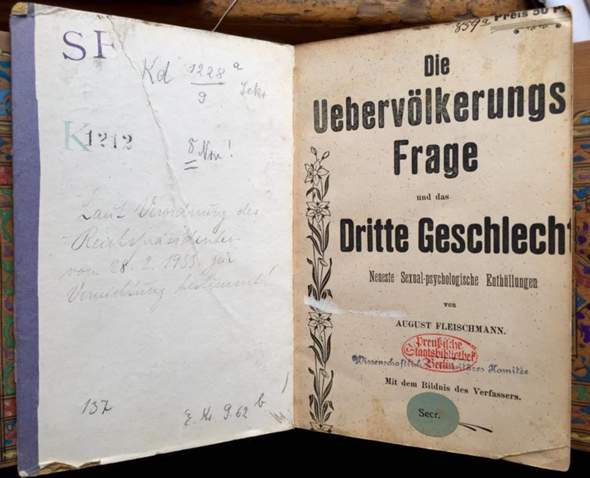 SF
Kd 1228 a
9
K1212
8 Nov!
Laut Verordnung des
Reichspräsidenten
vom 28. 2. 1933 zur
Vernichtung bestimmt!
137
9.62 b
859a Preis 50 P
Die
Uebervölkerungs
Frage
und das
Dritte Geschlecht
Neueste Sexual-psychologische Enthüllungen
von
AUGUST FLEISCHMANN.
Preußische
Staatsbibliothek
Berlin
Wissenschaftlich Komitée
Mit dem Bildnis des Verfassers.
Secr.